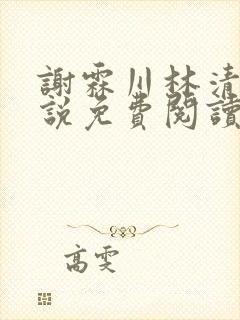 謝霖川林清
説免費閱讀
高雯